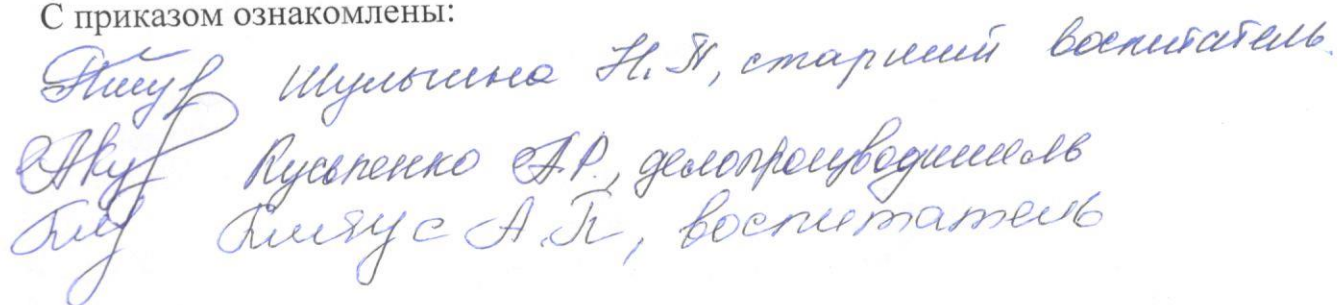 С приказом ознакомлены:
Шульгина Н.П, старший воспитатель.
А.Р., делопроизводитель
А.П, воспитатель